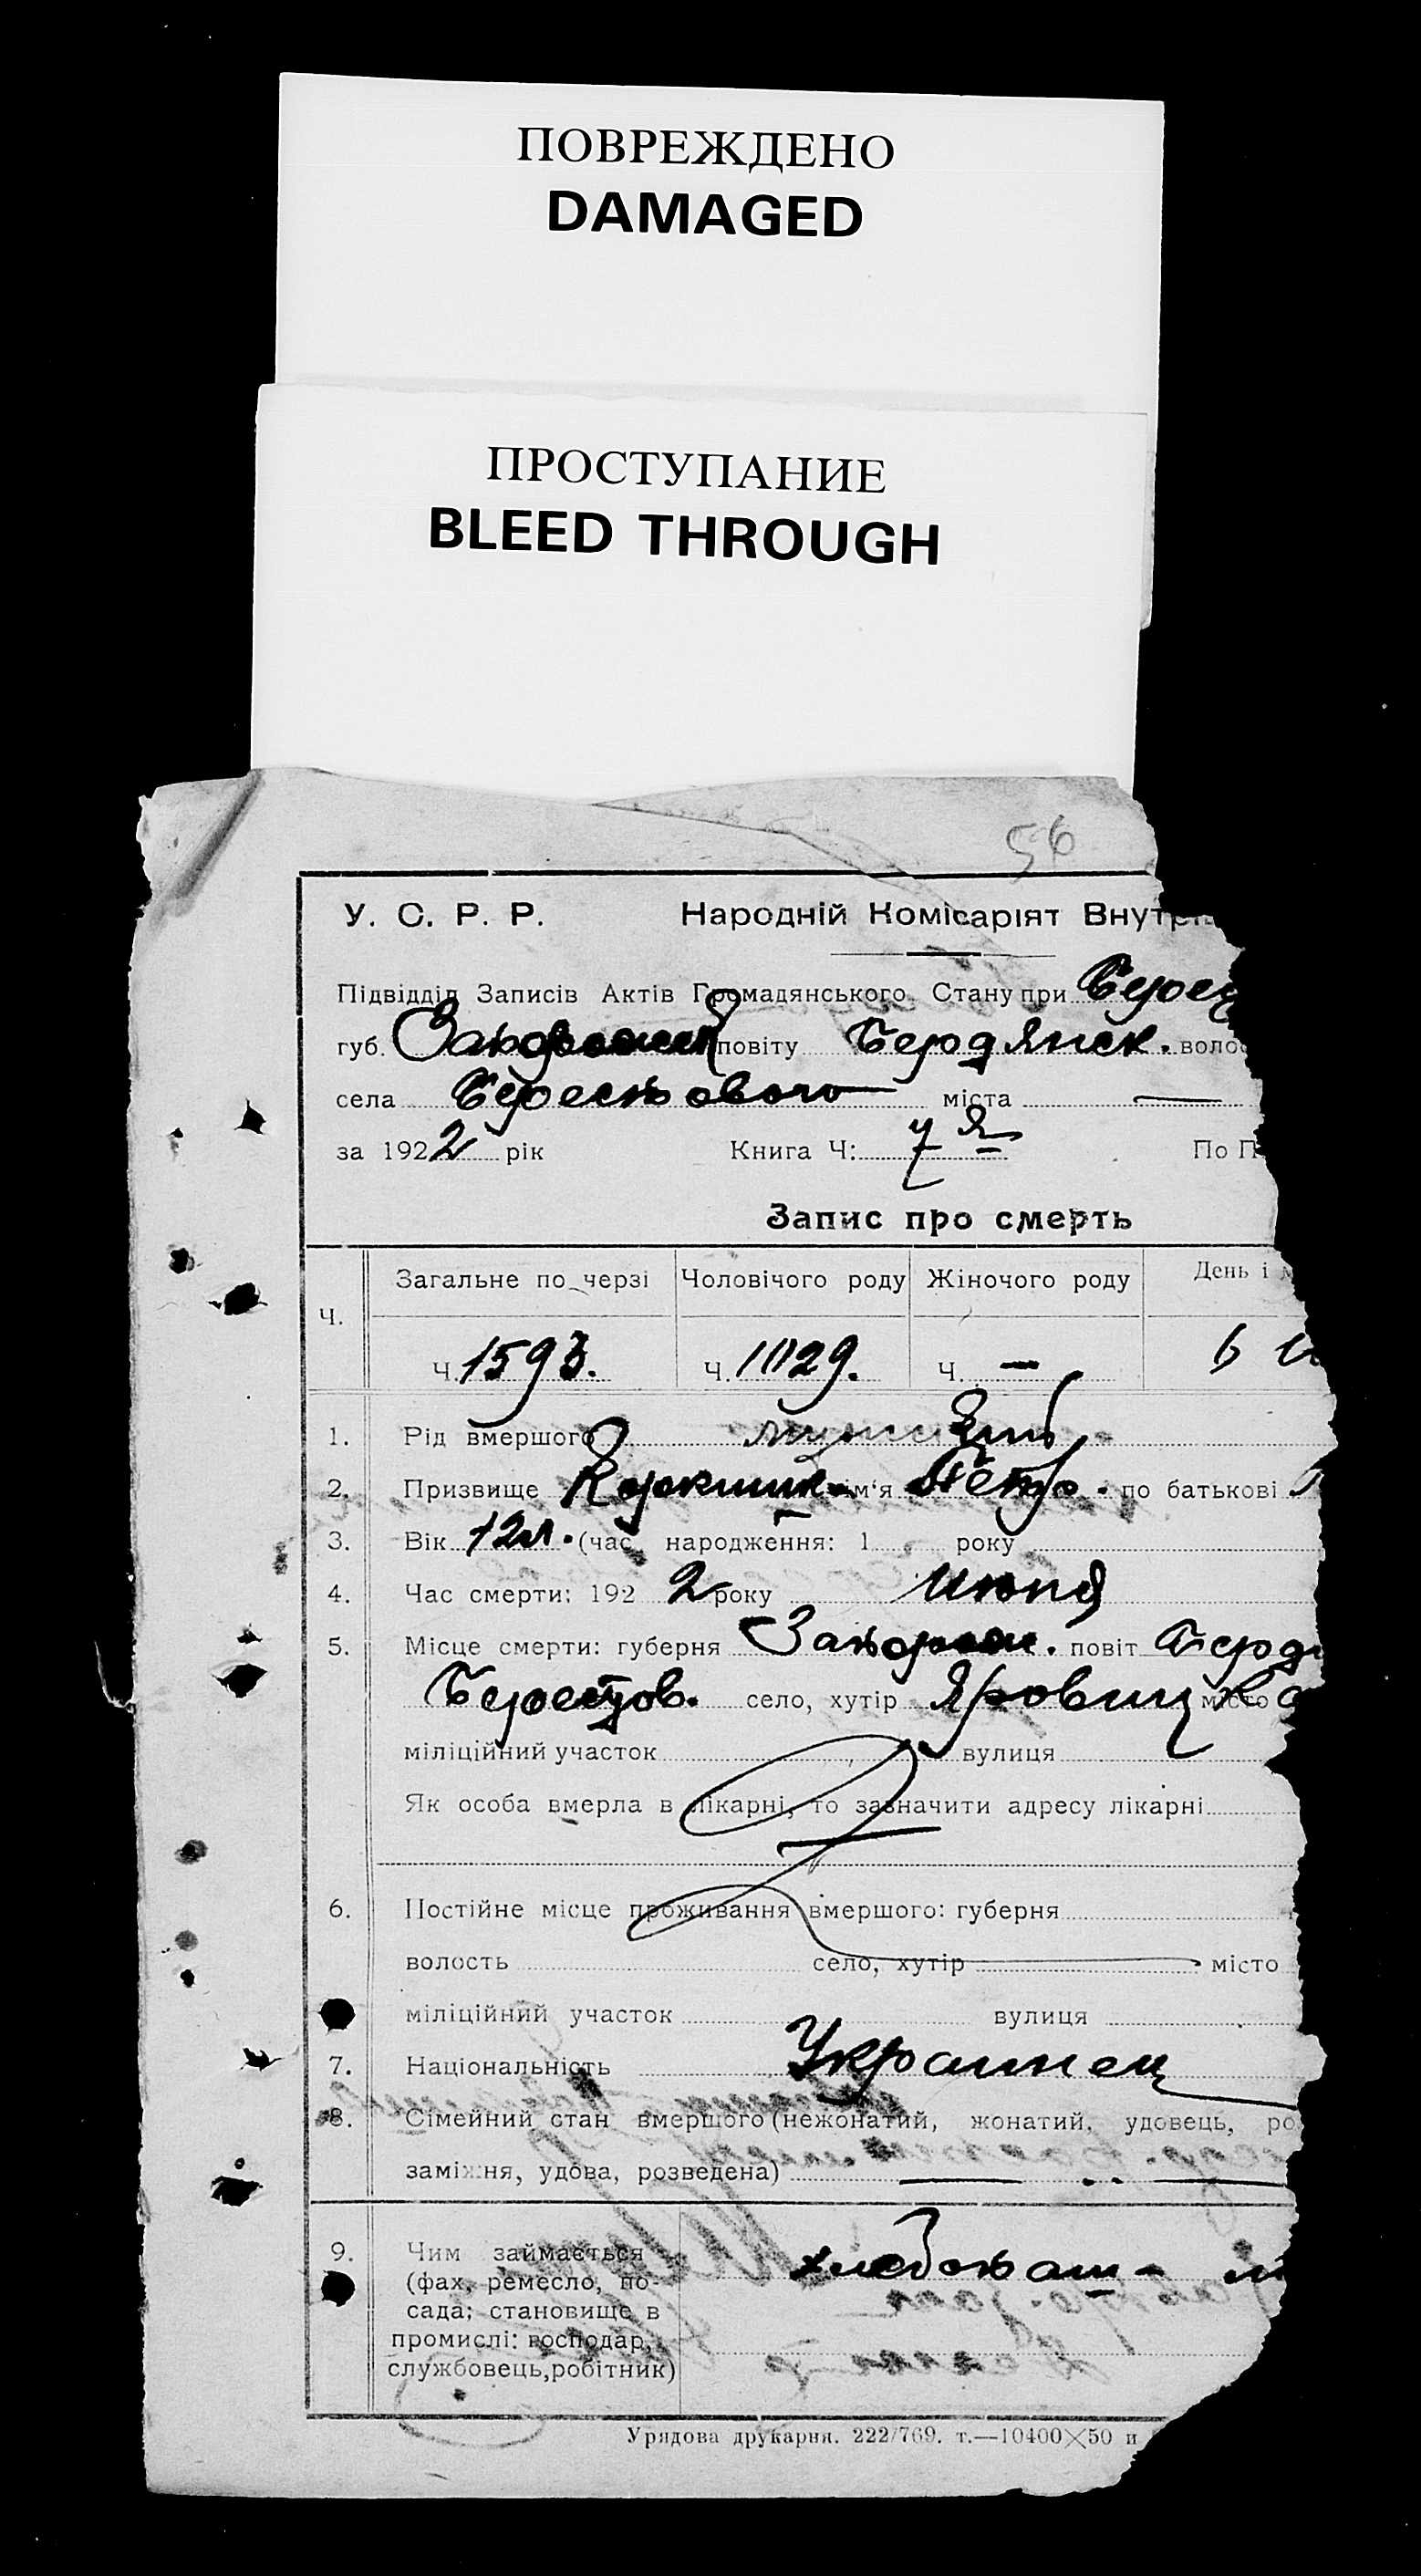 ПОВРЕЖДЕНО
DAMAGED
ПРОСТУПАНИЕ
BLEED THROUGH
56
У. С. Р. Р. Народній Комісаріят Внутр
Підвідділ Записів Актів Громадянського Стану при
губ. повіту Бердянск. волос
села Берестового міста —
за 1922 рік Книга Ч: 7я По П
Запис про смерть
Загальне по черзі Чоловічого роду Жіночого роду День і
Ч.
Ч. 1593. Ч. 1029. Ч. — 6
1. Рід вмершого
2. Призвище ім'я Петр. по батькові
3. Вік 12л. (час народження: 1 року
4. Час смерти: 1922 року июня
5. Місце смерти: губерня Запорож. повіт Берд
Берестов. село, хутір місто
міліційний участок вулиця
Як особа вмерла в лікарні, то зазначити адресу лікарні
6. Постійне місце проживання вмершого: губерня
волость село, хутір місто
міліційний участок вулиця
7. Національність Украинец
8. Сімейний стан вмершого (нежонатий, жонатий, удовець, ро
заміжня, удова, розведена) —
9. Чим займається хлебопаш-
(фах, ремесло, по-
сада; становище в
промислі: господар,
службовець, робітник)
Урядова друкарня. 222/769. т.—10400×50 и